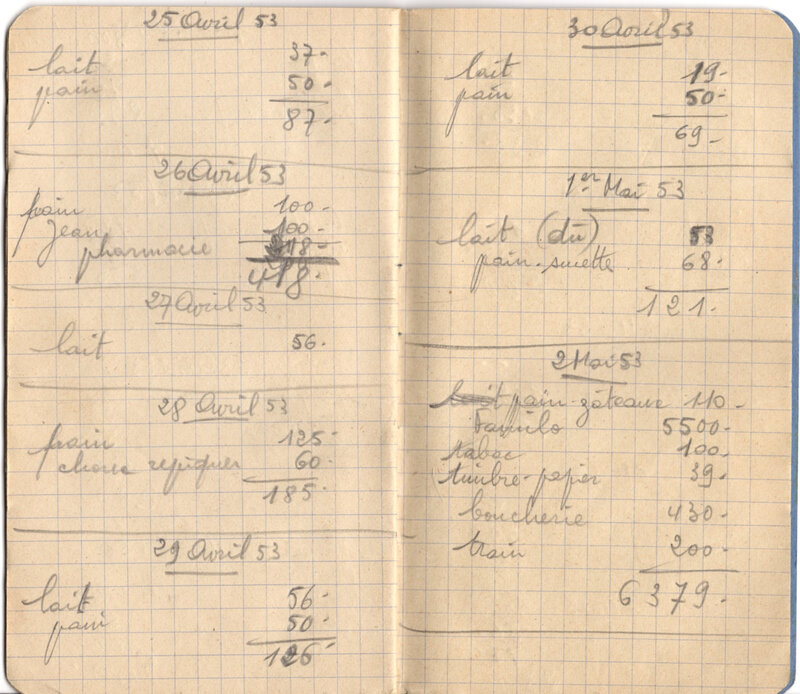 25 Avril 53
lait 37-
pain 50-
87-
26 Avril 53
pain 100-
Jean 100-
pharmacie 218-
418-
27 Avril 53
lait 56-
28 Avril 53
pain 125-
choux repiquer 60-
185-
29 Avril 53
lait 56-
pain 50-
126
30 Avril 53
lait 19-
pain 50-
69-
1er Mai 53
lait (dû) 53
pain-sucette 68-
121-
2 Mai 53
pain-gâteaux 110-
5500-
tabac 100-
timbre-papier 39-
boucherie 430-
train 200-
6379-